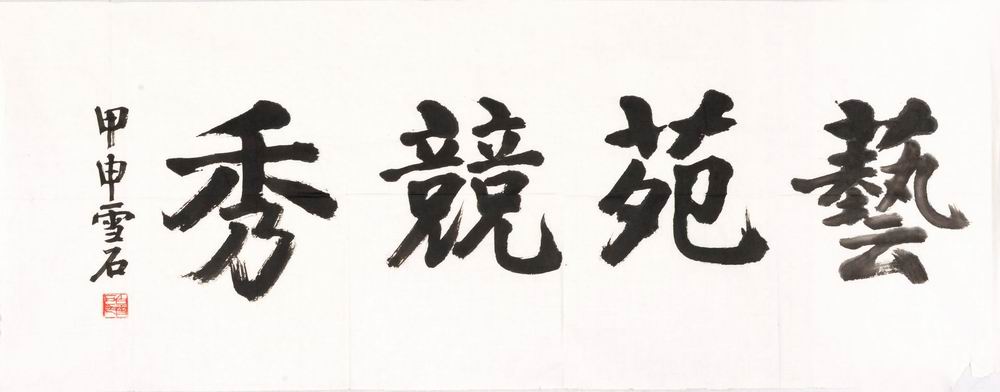 藝苑競秀
甲申雪石